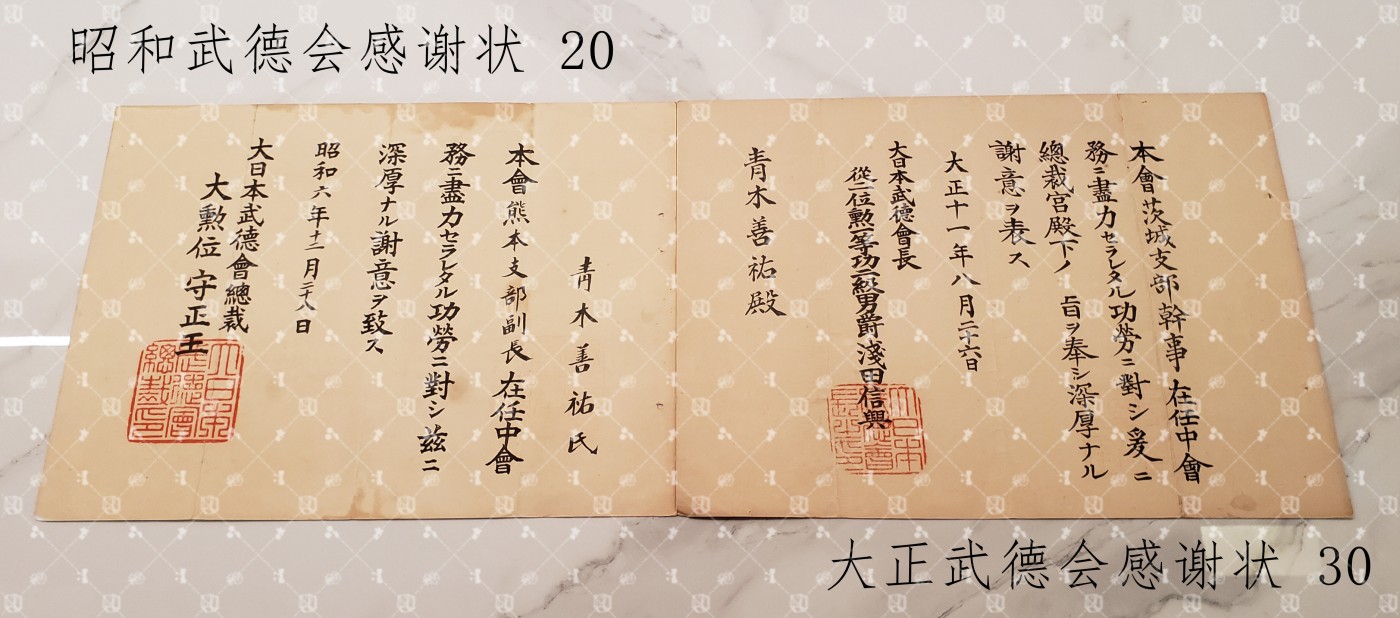 昭和武德会感谢状 20
本會茨城支部幹事在任中會
務ニ盡力セラレタル功勞ニ對シ爰ニ
總裁宮殿下ノ旨ヲ奉シ深厚ナル
謝意ヲ表ス
大正十一年八月二十六日
大日本武德會長
從二位勲一等功二級男爵淺田信興
青木善祐殿
青木善祐氏
本會熊本支部副長在任中會
務ニ盡力セラレタル功勞ニ對シ茲ニ
深厚ナル謝意ヲ致ス
昭和六年十二月二十八日
大日本武德會總裁
大勲位守正王
大日本武德會總裁印
大正武德会感谢状 30